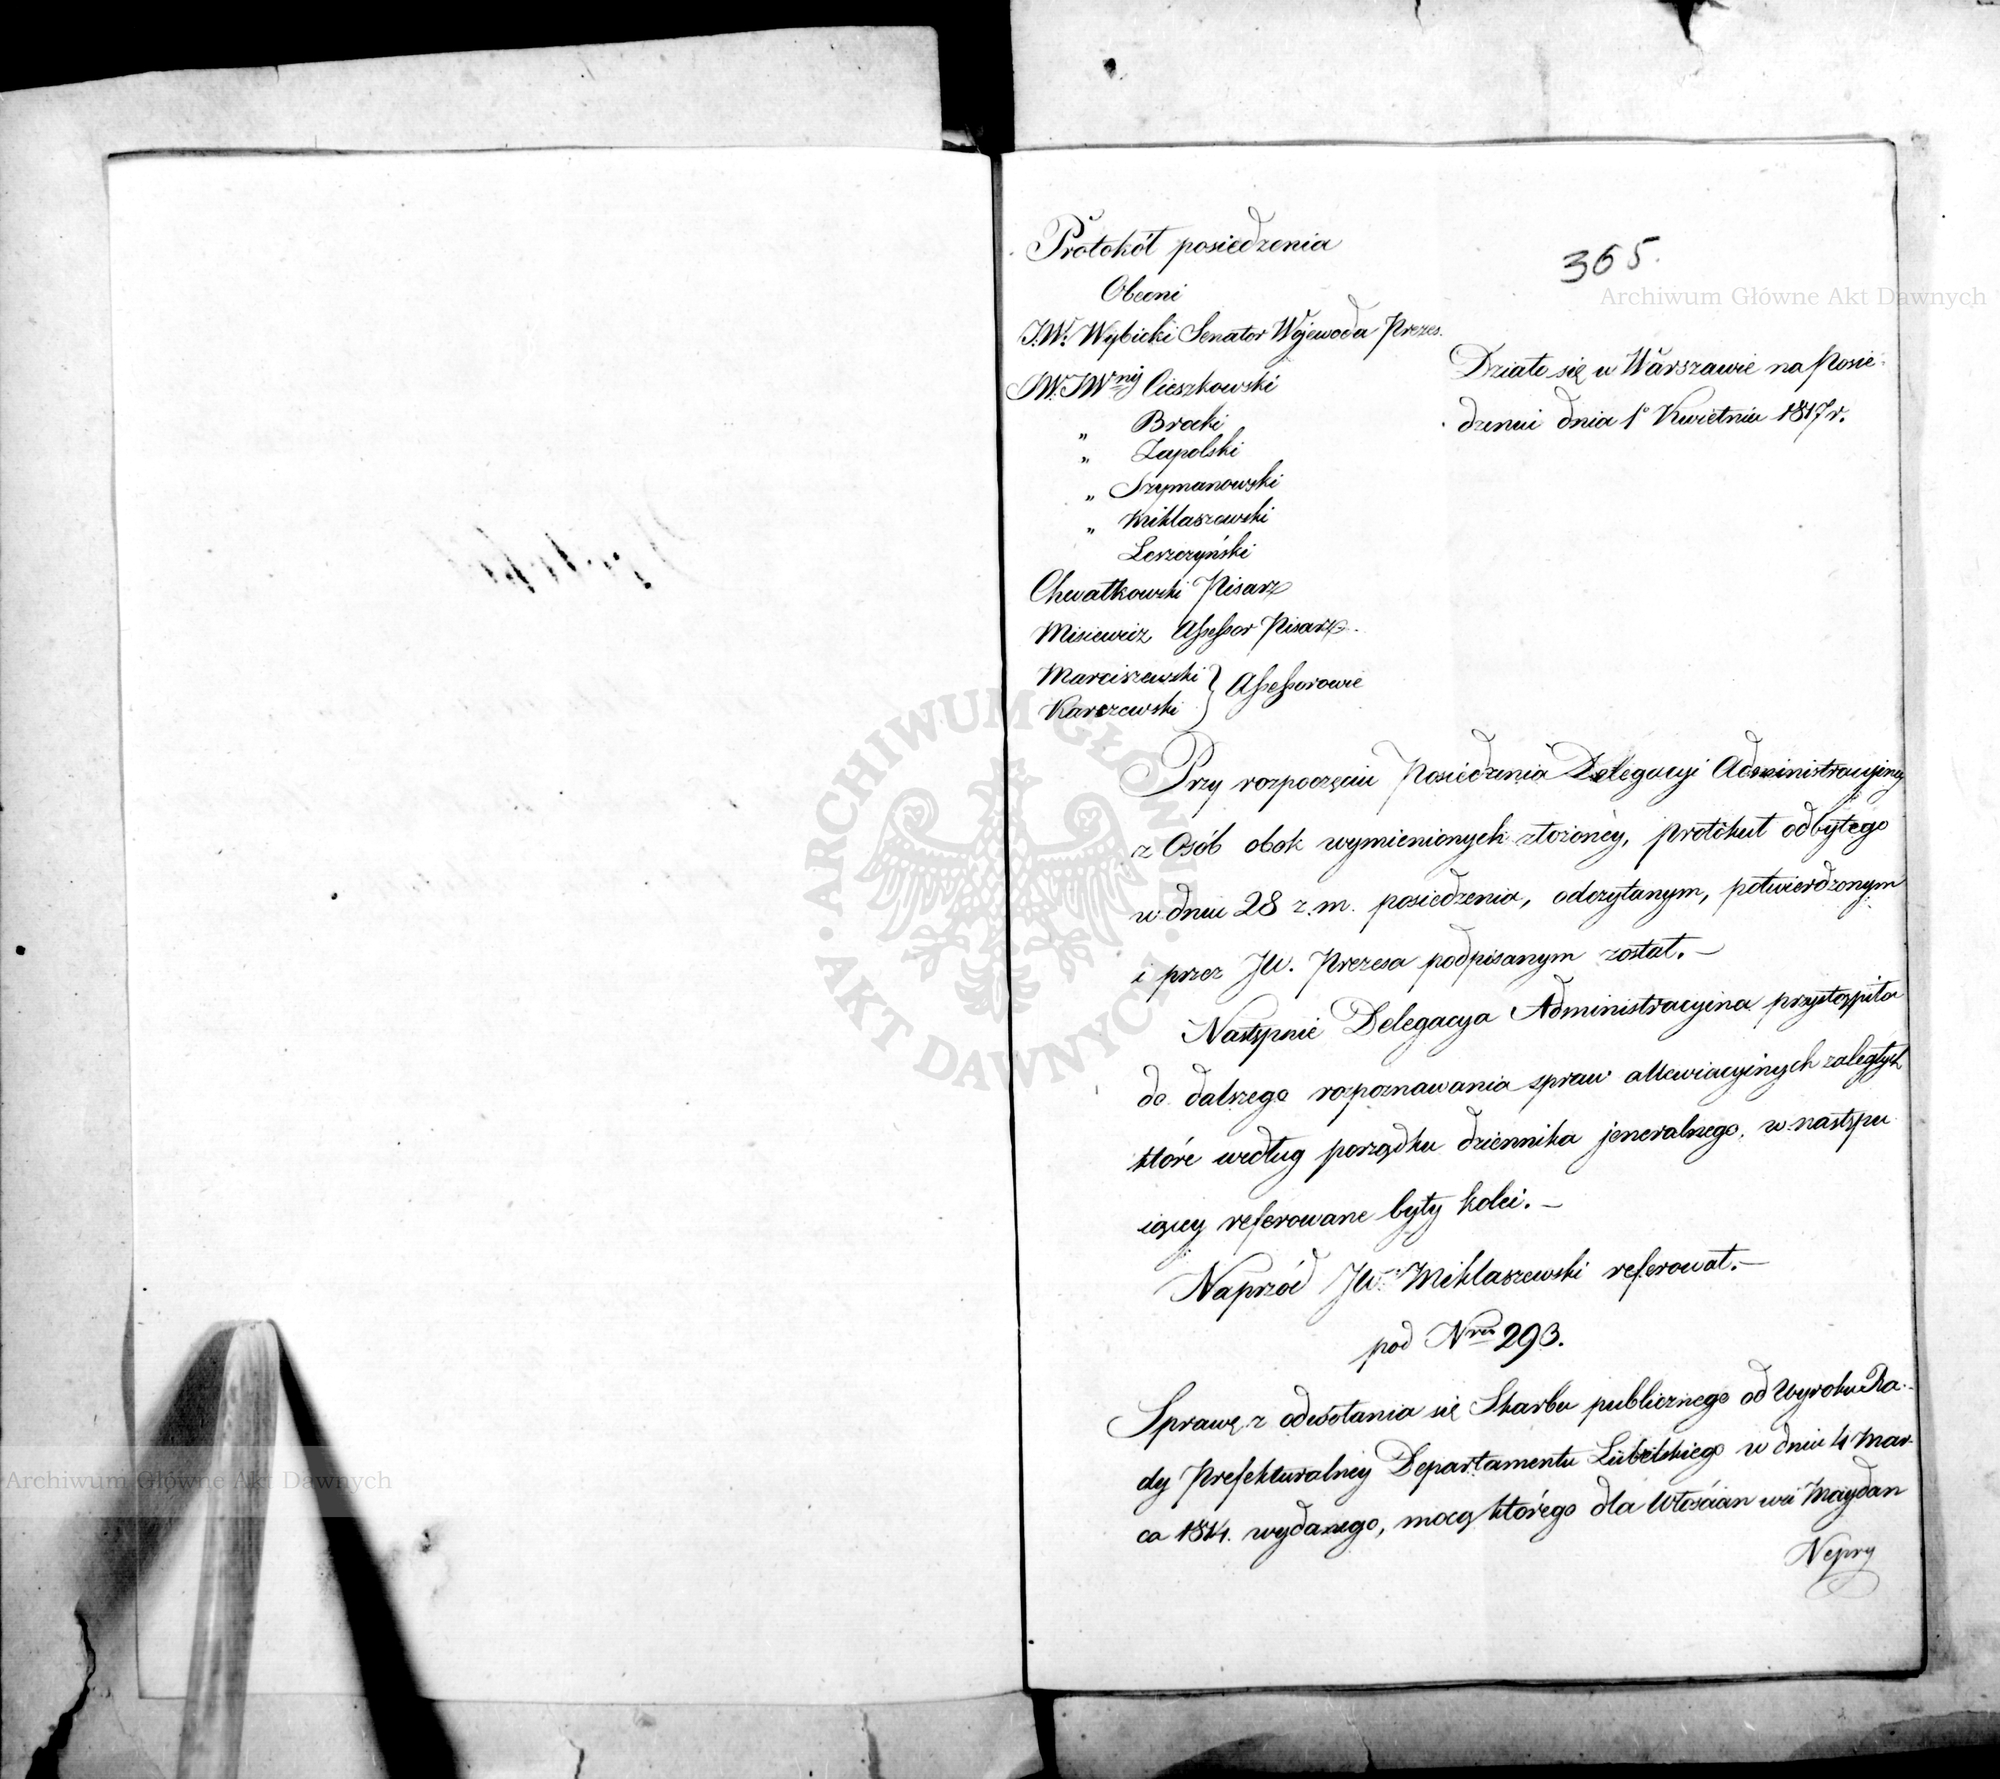 Protokół posiedzenia
365.
Obecni
J.W. Wybicki Senator Wojewoda Prezes.
JW. JWny Cieszkowski
„ Brocki
„ Zapolski
„ Szymanowski
„ Miklaszewski
Leszczyński
Chwałkowski Pisarz
Misiewicz Assessor Pisarz.
Marciszewski } Assessorowie
Karczewski
Działo się w Warszawie na Posie-
dzeniu dnia 1o Kwietnia 1817 r.
Przy rozpoczęciu Posiedzenia Delegacyi Administracyjney
z Osób obok wymienionych złożonéy, protokuł odbytego
w dniu 28 z.m. posiedzenia, odczytanym, potwierdzonym
i przez JW. Prezesa podpisanym został. —
Następnie Delegacya Administracyina przystąpiła
do dalszego rozpoznawania spraw allewiacyinych zaległych
które według porządku dziennika jeneralnego, w nastepu
iącey referowane były kolei. —
Naprzód JW. Miklaszewski referował. —
pod Nrm 293.
Sprawę z odwołania się Skarbu publicznego od Wyroku Ra-
dy Prefekturalney Departamentu Lubelskiego w dniu 4 Mar-
ca 1814. wydanego, mocą którego dla Włościan wsi Maydan
Nepry
Archiwum Główne Akt Dawnych
Archiwum Główne Akt Dawnych
ARCHIWUM GŁÓWNE · AKT DAWNYCH ·